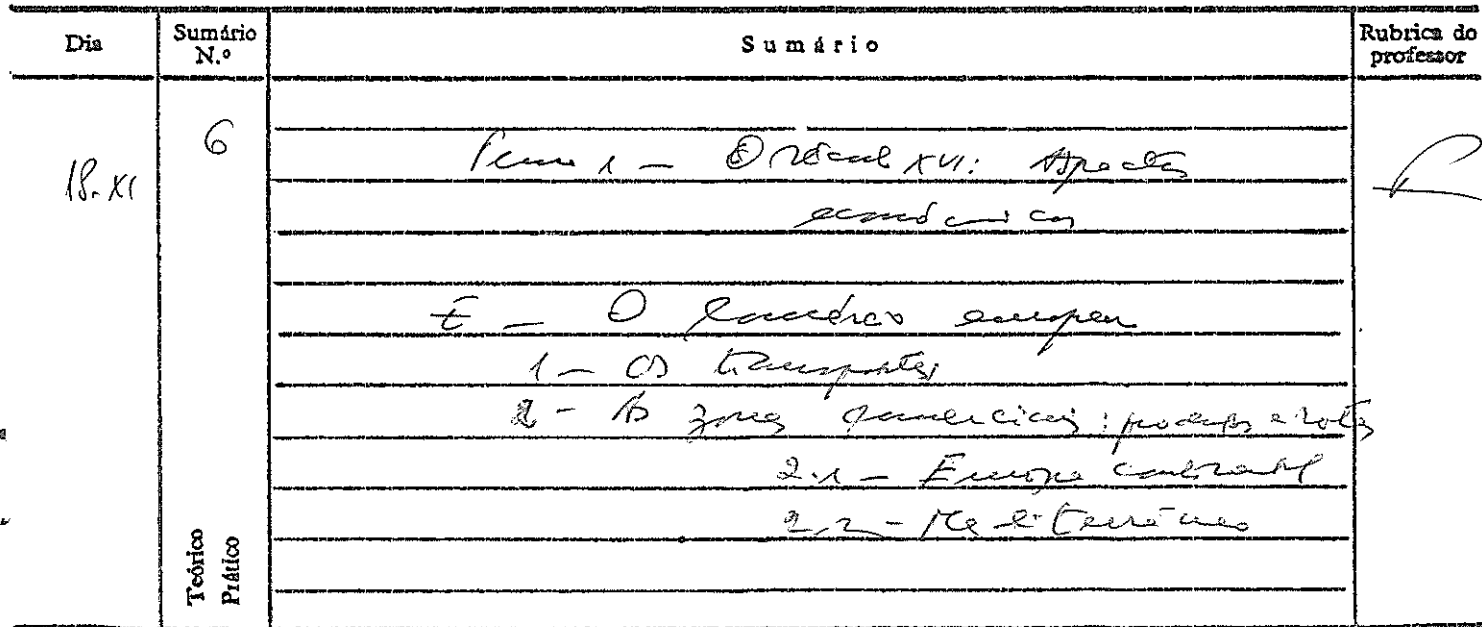 Dia Sumário N.º Sumário Rubrica do professor
18-XI 6 Tema 1 — O século XVI: Aspectos
económicos
E — O comércio europeu
1 — Os transportes
2 - As zonas comerciais: produtos e rotas
2.1 — Europa central
2.2 — Mediterrâneo
Teórico
Prático